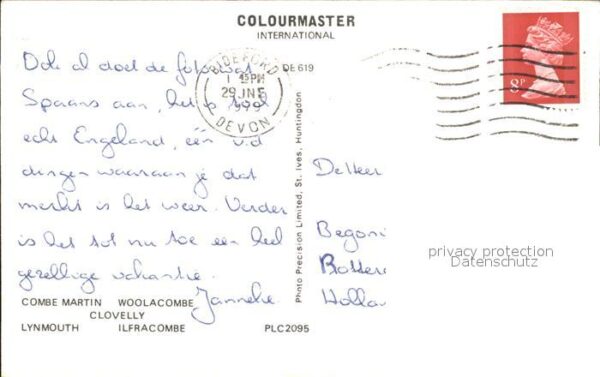 COLOURMASTER
INTERNATIONAL
Ook al doet de foto wat
Spaans aan, het is toch
echt Engeland, één v.d
dingen waaraan je dat
merkt is het weer. Verder
is het tot nu toe een heel
gezellige vakantie.
Janneke
COMBE MARTIN WOOLACOMBE
CLOVELLY
LYNMOUTH ILFRACOMBE
PLC2095
DE 619
Photo Precision Limited, St. Ives, Huntingdon
BIDEFORD
PM
29 JNE
1979
DEVON
8P
De Heer
Begoni
Rotter
Hollan
privacy protection
Datenschutz